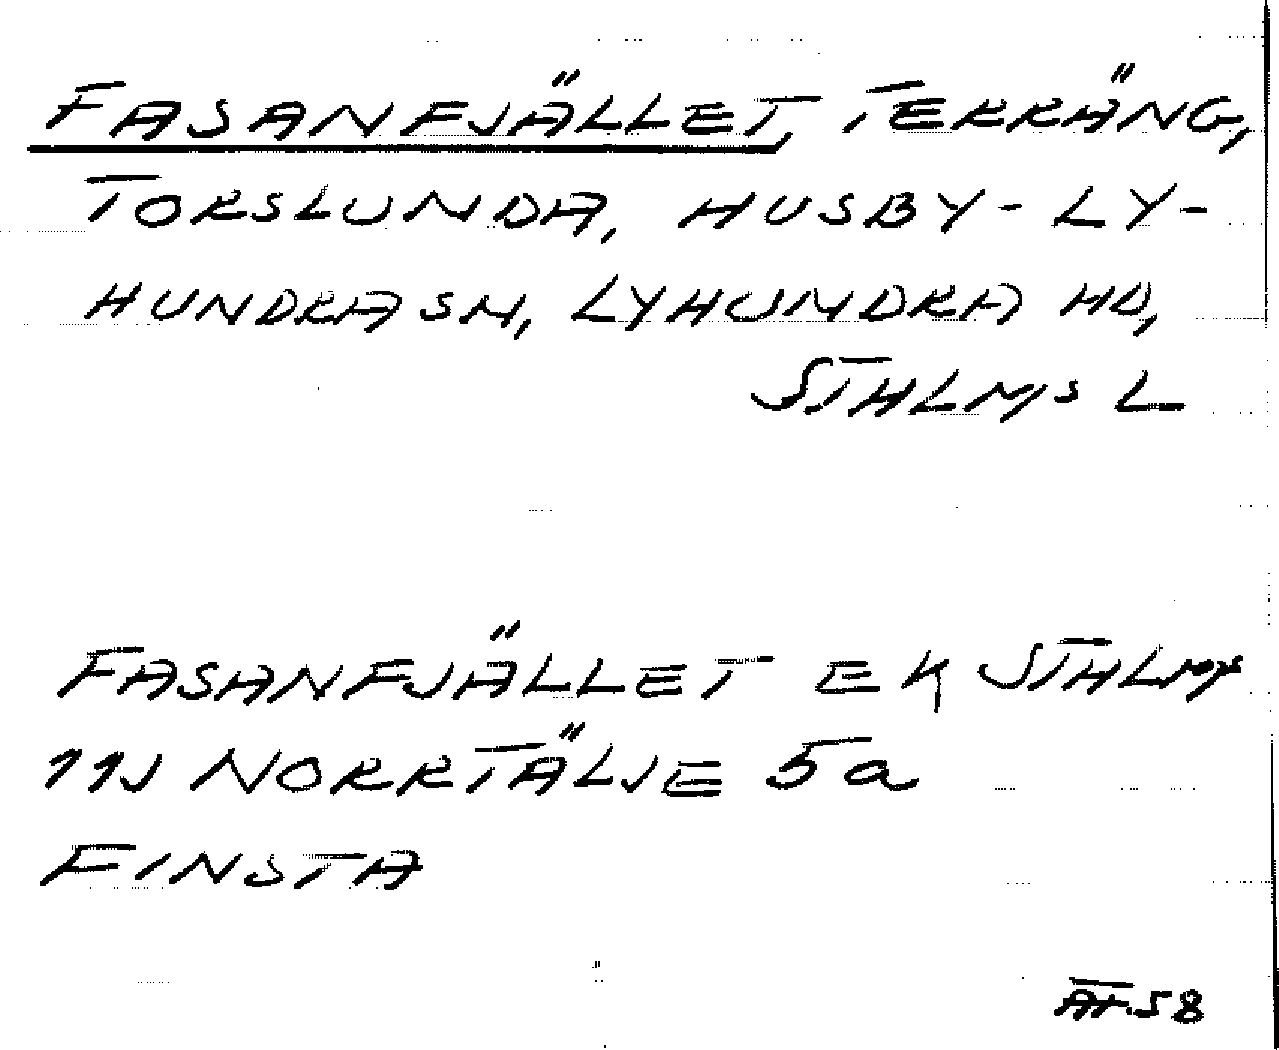 FASANFJÄLLET, TERRÄNG,
TORSLUNDA, HUSBY-LY-
HUNDRA SN, LYHUNDRA HD,
STHLMS L
FASANFJÄLLET EK STHLMS
11J NORRTÄLJE 5a
FINSTA